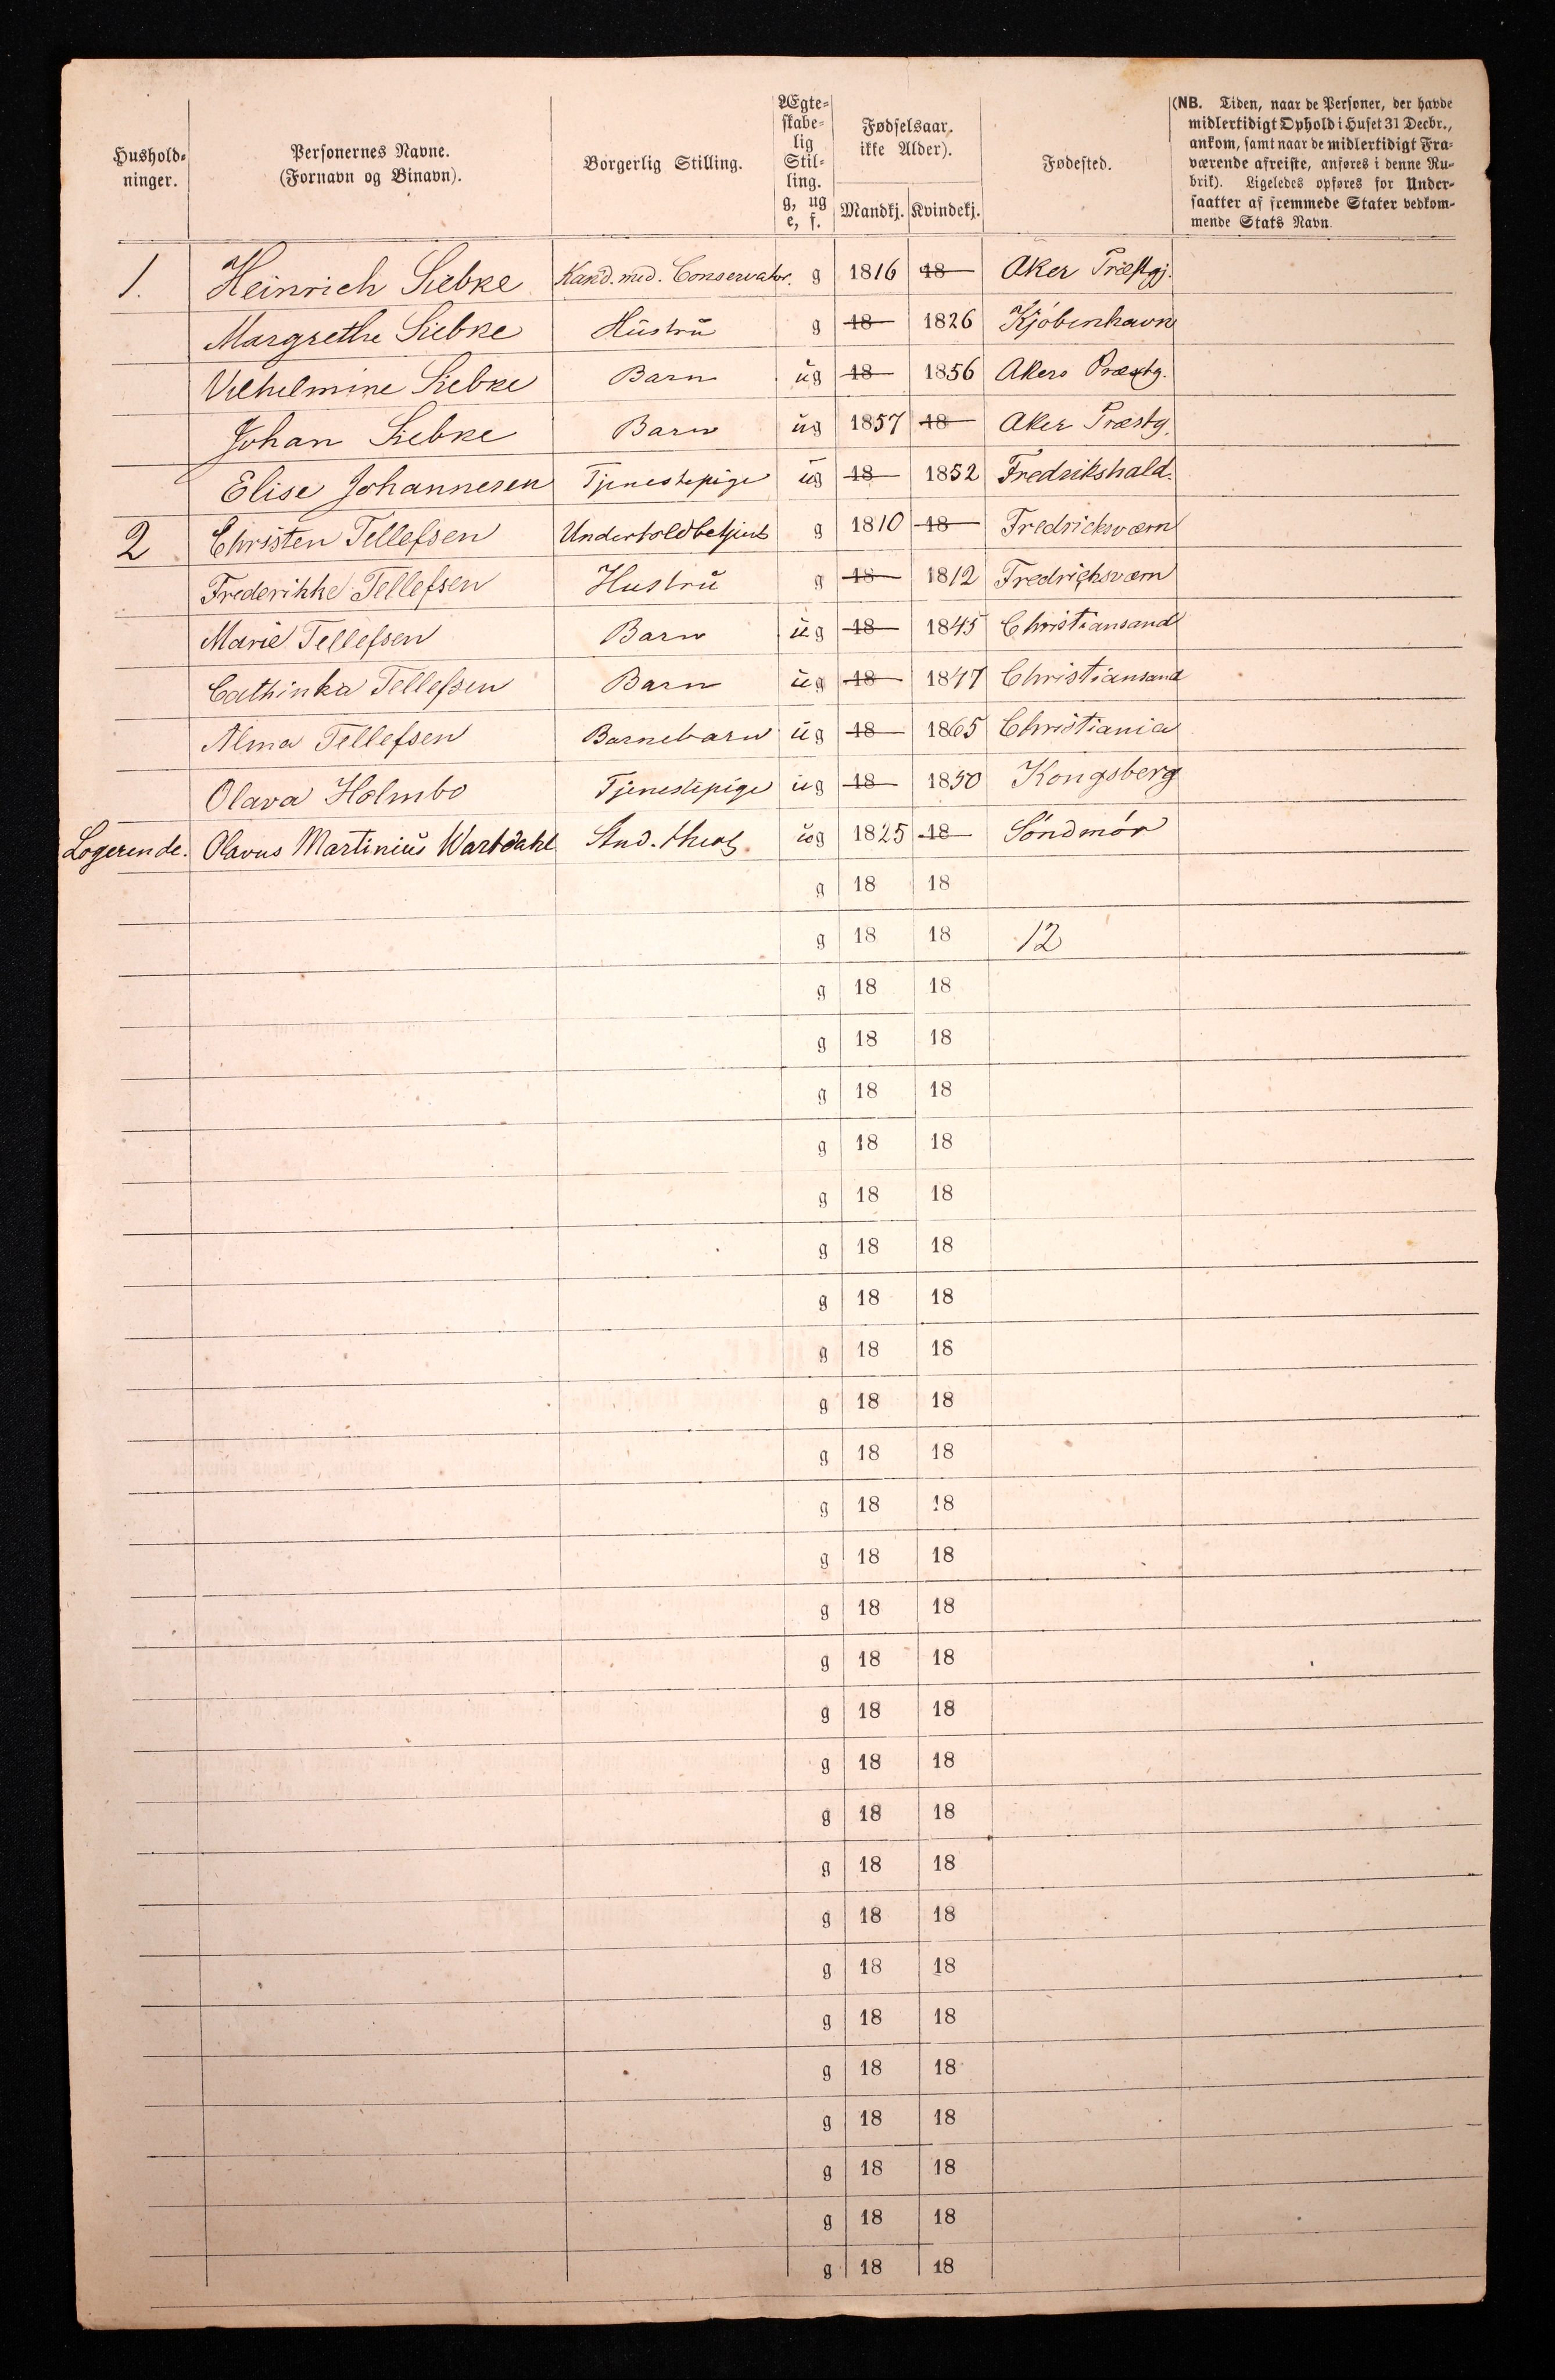 Hushold=
ninger.
Personernes Navne.
(Fornavn og Binavn).
Borgerlig Stilling.
Ægte=
skabe=
lig
Stil=
ling.
g, ug
e, f.
Fødselsaar.
ikke Alder).
Mandkj. Kvindekj.
Fødested.
(NB. Tiden, naar de Personer, der havde
midlertidigt Ophold i Huset 31 Decbr.,
ankom, samt naar de midlertidigt Fra=
værende afreiste, anføres i denne Ru=
brik). Ligeledes opføres for Under=
saatter af fremmede Stater vedkom=
mende Stats Navn.
1. Heinrich Siebke Kand. med. Conservator. g 1816 18 Aker Præstgj.
Margrethe Siebke Hustru g 18 1826 Kjöbenhavn
Vilhelmine Siebke Barn ug 18 1856 Akers Præstg.
Johan Siebke Barn ug 1857 18 Aker Præstg.
Elise Johannesen Tjenestepige ug 18 1852 Fredrikshald.
2 Christen Tellefsen Undertoldbetjent g 1810 18 Fredricksværn
Frederikke Tellefsen Hustru g 18 1812 Fredriksværn
Marie Tellefsen Barn ug 18 1845 Christiansand
Cathinka Tellefsen Barn ug 18 1847 Christiansand
Alma Tellefsen Barnebarn ug 18 1865 Christiania
Olava Holmbo Tjenestepige ug 18 1850 Kongsberg
Logerende. Olavus Martinius Wartdahl Stud. theol. ug 1825 18 Söndmör
g 18 18
g 18 18 12
g 18 18
g 18 18
g 18 18
g 18 18
g 18 18
g 18 18
g 18 18
g 18 18
g 18 18
g 18 18
g 18 18
g 18 18
g 18 18
g 18 18
g 18 18
g 18 18
g 18 18
g 18 18
g 18 18
g 18 18
g 18 18
g 18 18
g 18 18
g 18 18
g 18 18
g 18 18